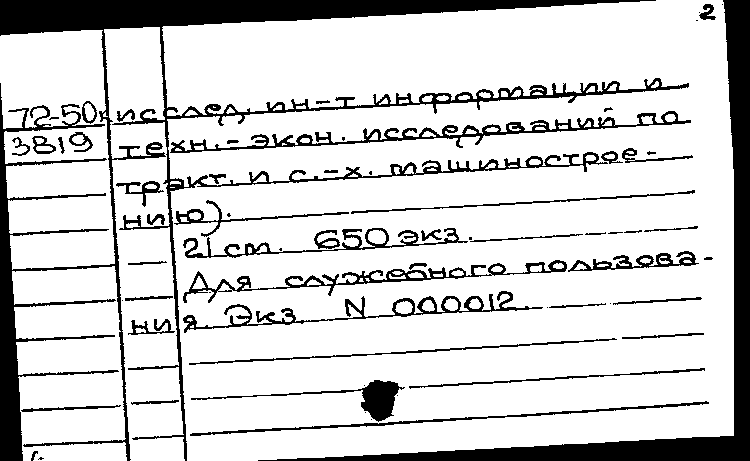 2
72-50к исслед. ин-т информации и
3819 техн.-экон. исследований по
тракт. и с.-х. машинострое-
нию).
21 см. 650 экз.
Для служебного пользова-
ния. Экз. N 000012.